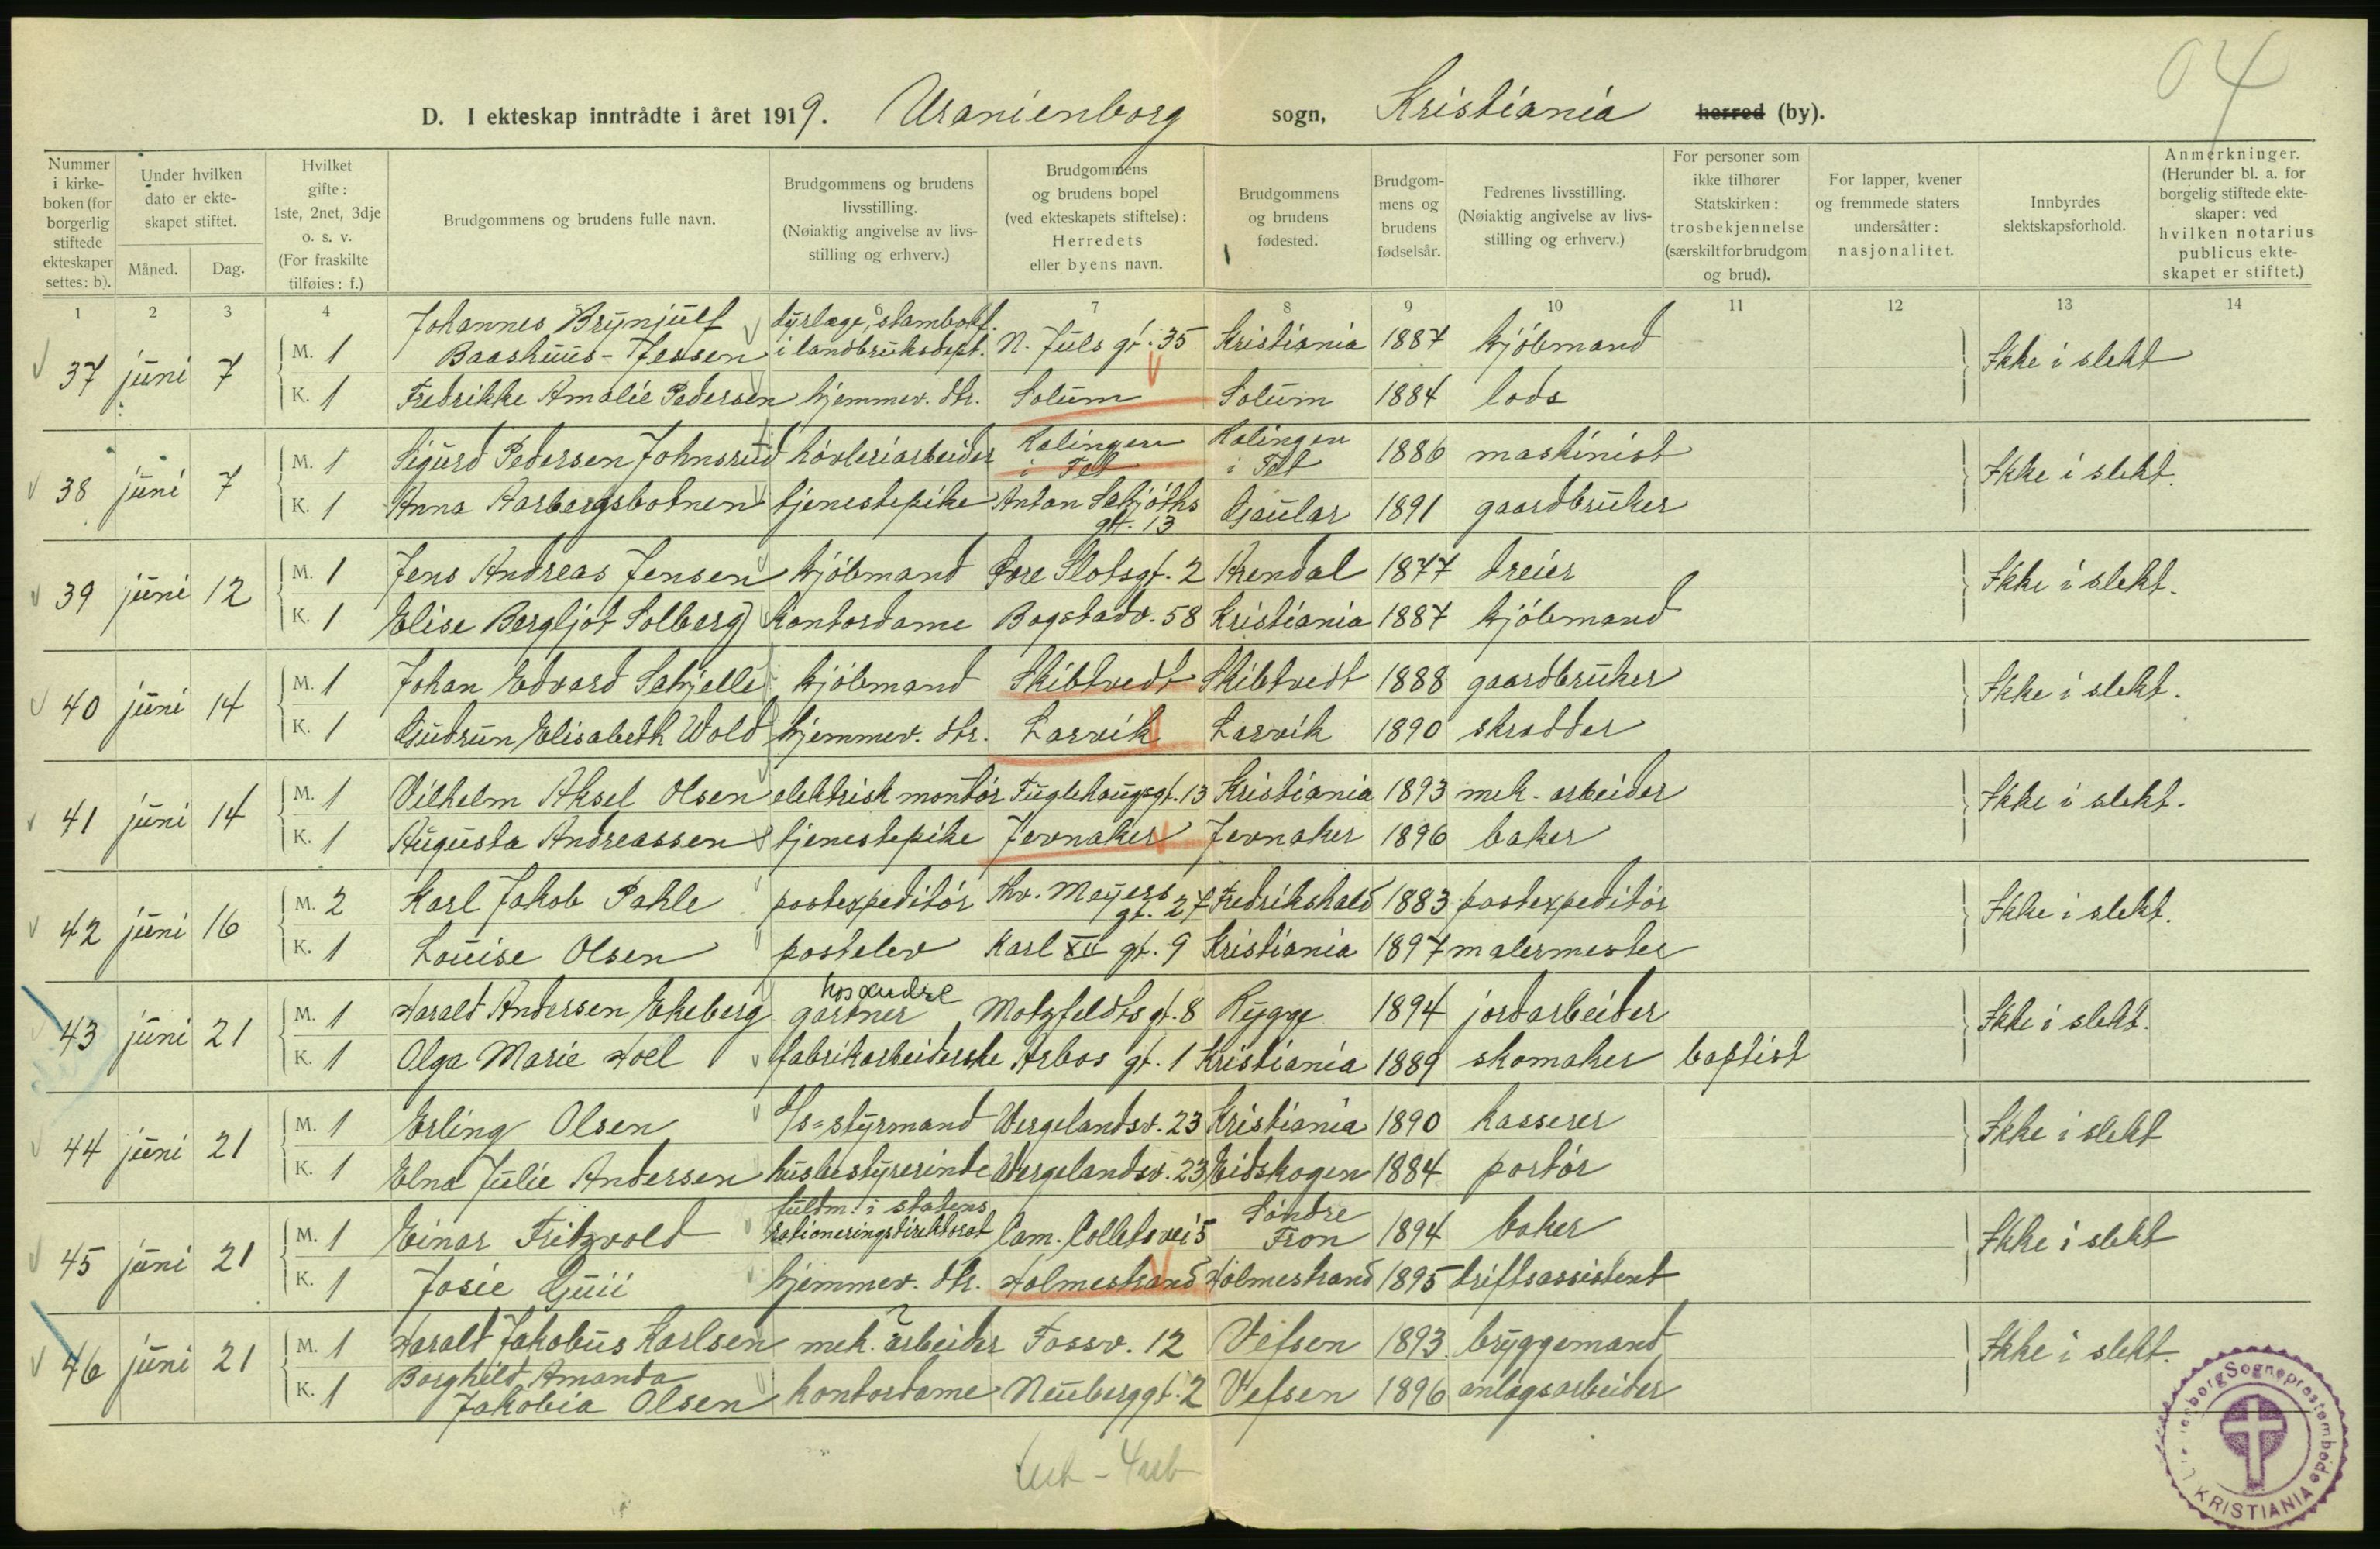 04
D. I ekteskap inntrådte i året 1919. Uranienborg sogn, Kristiania herred (by).
Nummer i kirke-boken (for borgerlig stiftede ekteskaper settes: b).
Under hvilken dato er ekte-skapet stiftet.
Måned. Dag.
Hvilket gifte: 1ste, 2net, 3dje o. s. v. (For fraskilte tilføies: f.)
Brudgommens og brudens fulle navn.
Brudgommens og brudens livsstilling. (Nøiaktig angivelse av livs-stilling og erhverv.)
Brudgommens og brudens bopel (ved ekteskapets stiftelse): Herredets eller byens navn.
Brudgommens og brudens fødested.
Brudgom-mens og brudens fødselsår.
Fedrenes livsstilling. (Nøiaktig angivelse av livs-stilling og erhverv.)
For personer som ikke tilhører Statskirken: trosbekjennelse (særskilt for brudgom og brud).
For lapper, kvener og fremmede staters undersåtter: nasjonalitet.
Innbyrdes slektskapsforhold.
Anmerkninger. (Herunder bl. a. for borgelig stiftede ekte-skaper: ved hvilken notarius publicus ekte-skapet er stiftet.)
1 2 3 4 7 8 9 10 11 12 13 14
37 juni 7 M. 1 Johannes Brynjulf Baashuus-Jessen dyrlæge, stambokf. i landbruksdept. N. Juels gt. 35 Kristiania 1887 kjøbmand Ikke i slekt
K. 1 Fredrikke Amalie Pedersen hjemmev. dtr. Solum Solum 1884 lods
38 juni 7 M. 1 Sigurd Pedersen Johnsrud høvleriarbeider Kalingen i Fet Kalingen i Fet 1886 maskinist Ikke i slekt.
K. 1 Anna Aarbergsbotnen tjenestepike Anton Schjøths gt. 13 Gaular 1891 gaardbruker
39 juni 12 M. 1 Jens Andreas Jensen kjøbmand Øvre Slotsgt. 2 Arendal 1877 dreier Ikke i slekt.
K. 1 Elise Bergljot Solberg kontordame Bogstadv. 58 Kristiania 1887 kjøbmand
40 juni 14 M. 1 Johan Edvard Schjelle kjøbmand Skibtvedt Skibtvedt 1888 gaardbruker Ikke i slekt.
K. 1 Gudrun Elisabeth Wold hjemmev. dtr. Larvik Larvik 1890 skrædder
41 juni 14 M. 1 Vilhelm Aksel Olsen elektrisk montør Fuglehaugsgt. 13 Kristiania 1893 mek. arbeider Ikke i slekt.
K. 1 Augusta Andreassen tjenestepike Jevnaker Jevnaker 1896 baker
42 juni 16 M. 2 Karl Jakob Pahle postexpeditør Thv. Meyers gt. 27 Fredrikshald 1883 postexpeditør Ikke i slekt.
K. 1 Louise Olsen postelev Karl XII gt. 9 Kristiania 1897 malermester
43 juni 21 M. 1 Harald Andersen Ekeberg gartner hos andre Motzfeldts gt. 8 Rygge 1894 jordarbeider Ikke i slekt.
K. 1 Olga Marie Hoel fabrikarbeiderske Arbos gt. 1 Kristiania 1889 skomaker baptist
44 juni 21 M. 1 Erling Olsen d/s=styrmand Wergelandsv. 23 Kristiania 1890 kasserer Ikke i slekt
K. 1 Elna Julie Andersen husbestyrerinde Wergelandsv. 23 Eidskogen 1884 portør
45 juni 21 M. 1 Einar Fritzvold fuldm. i statens rationeringsdirektorat Cam. Collets vei 5 Søndre Fron 1894 baker Ikke i slekt
K. 1 Josie Guii hjemmev. dtr. Holmestrand Holmestrand 1895 driftsassistent
46 juni 21 M. 1 Harald Jakobus Karlsen mek. arbeider ? Fossv. 12 Vefsen 1893 bryggemand Ikke i slekt.
K. 1 Borghild Amanda Jakobia Olsen kontordame Neuberggt. 2 Vefsen 1896 anlægsarbeider
Sogneprestembede KRISTIANIA